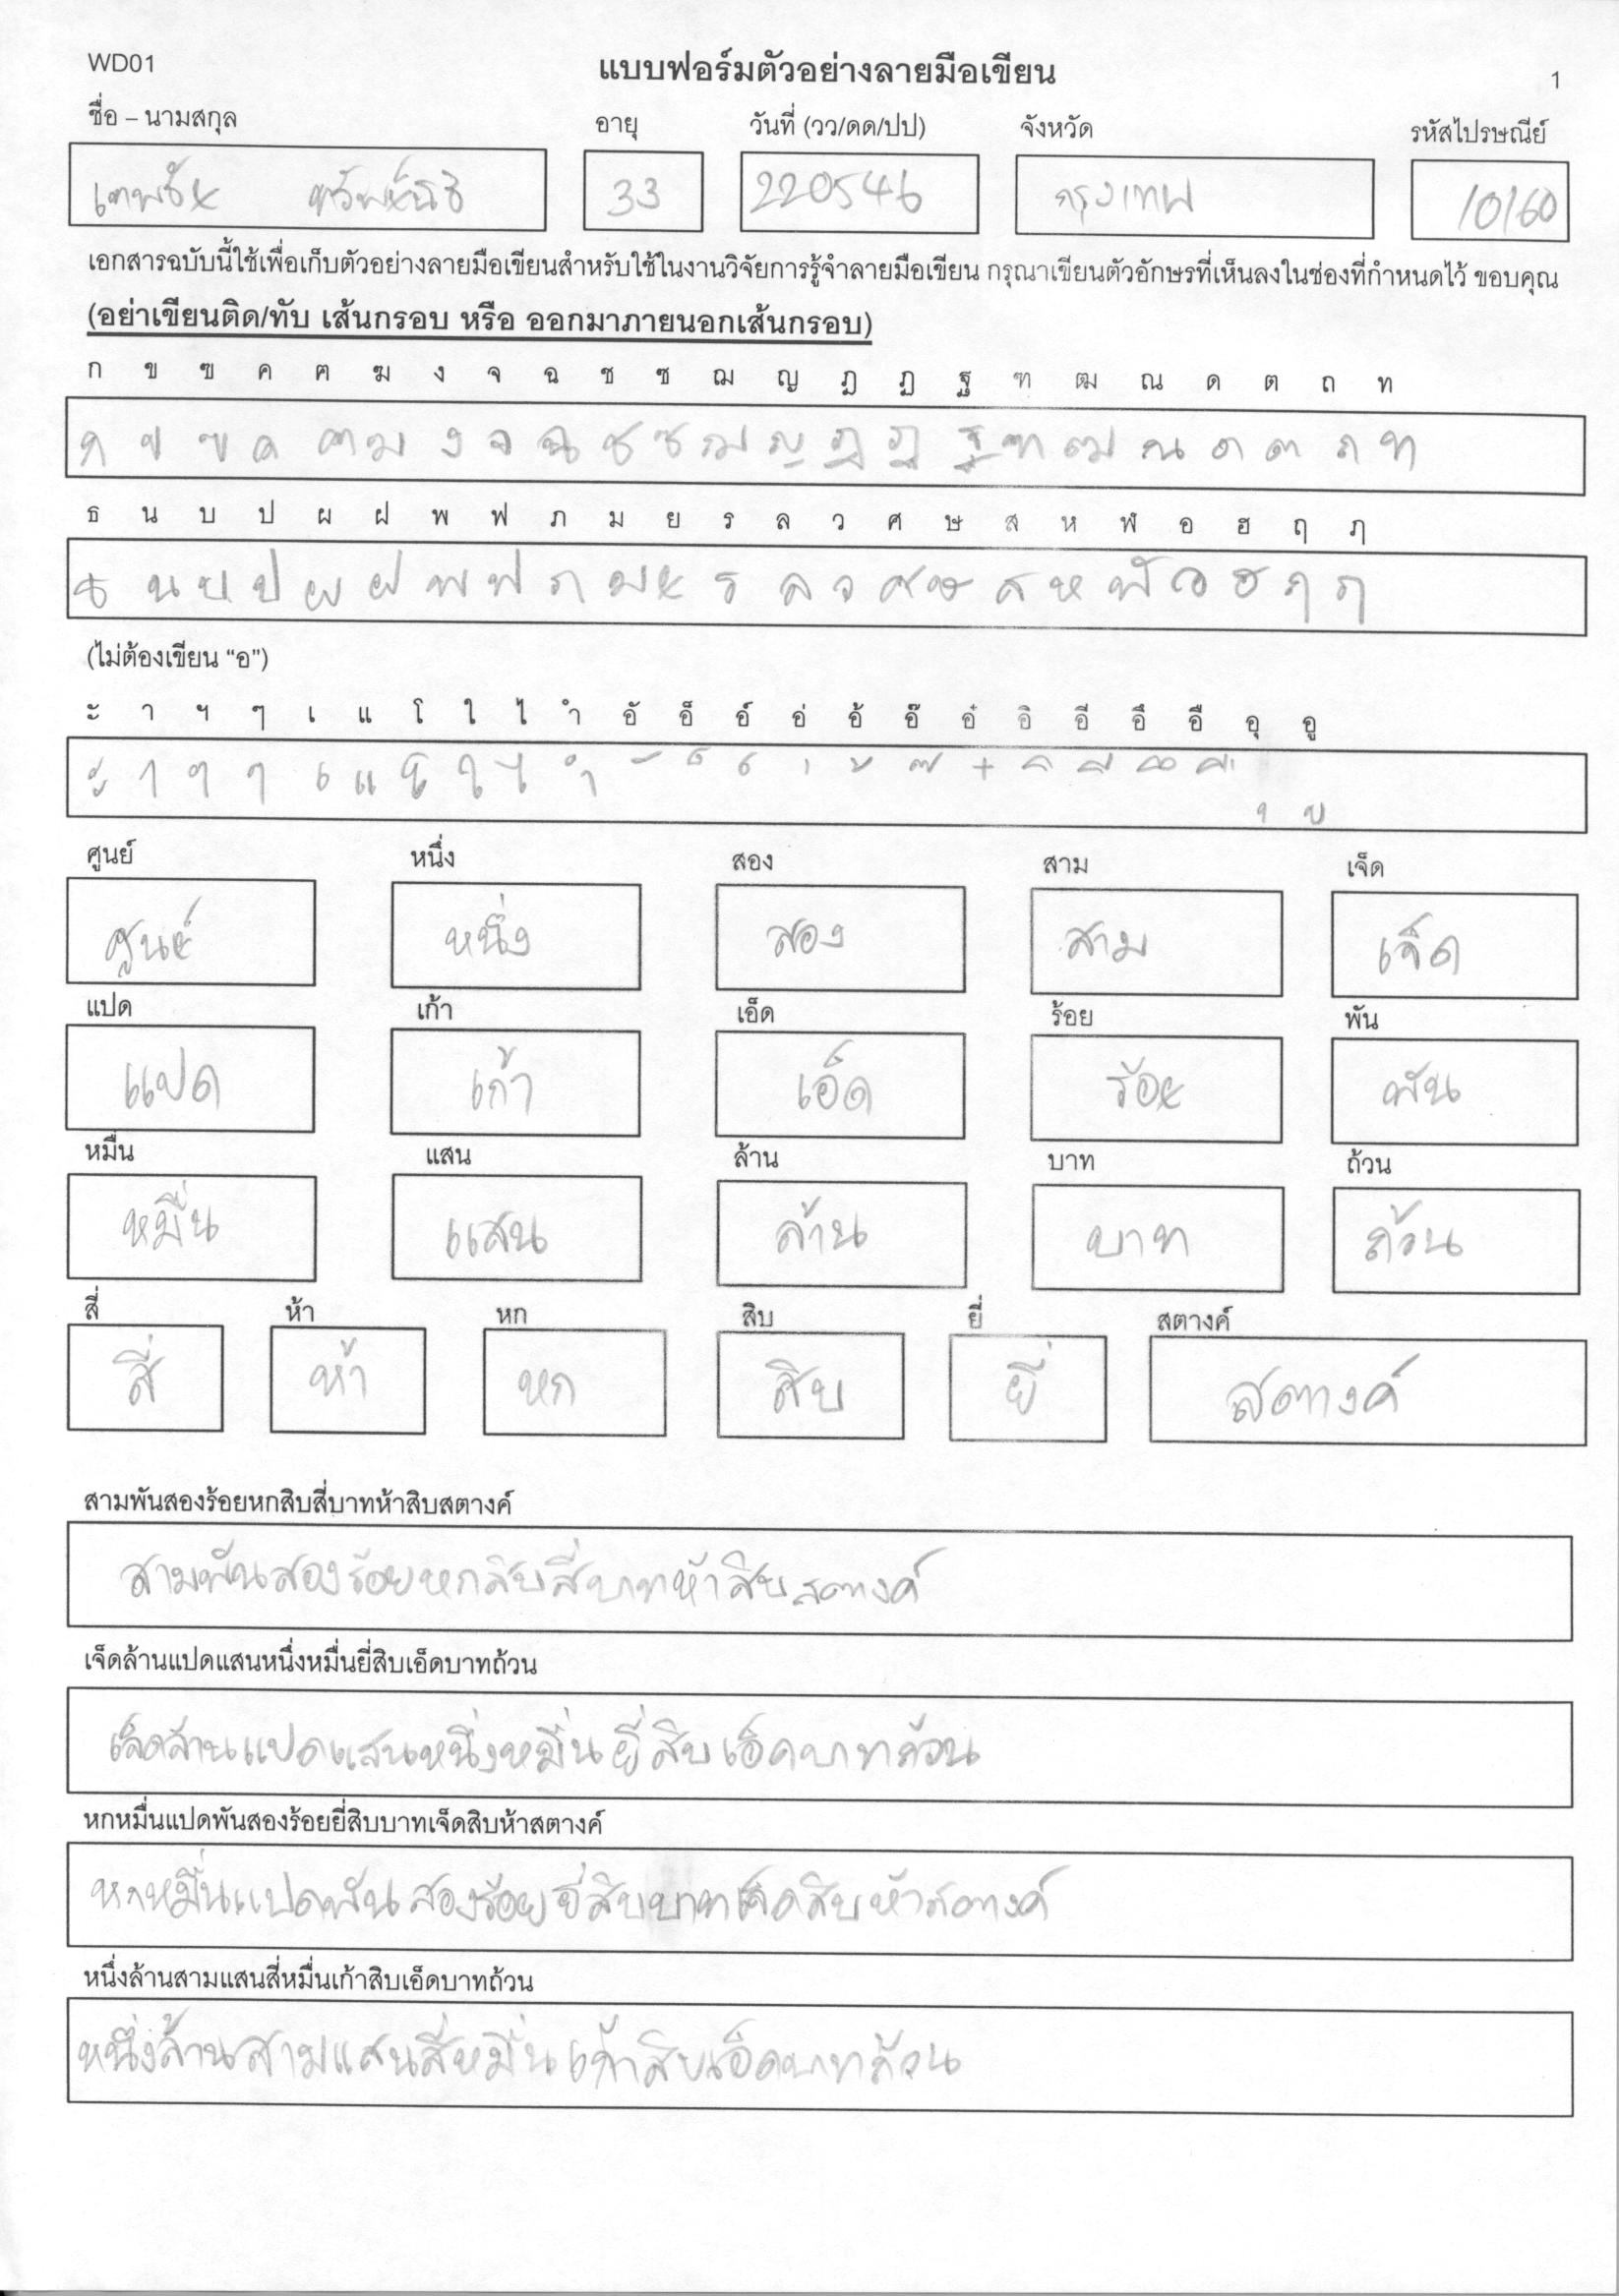 WD01 แบบฟอร์มตัวอย่างลายมือเขียน 1
ชื่อ – นามสกุล อายุ วันที่ (วว/ดด/ปป) จังหวัด รหัสไปรษณีย์
เทพชัย ทรัพย์นิธิ 33 220546 กรุงเทพ 10160
เอกสารฉบับนี้ใช้เพื่อเก็บตัวอย่างลายมือเขียนสำหรับใช้ในงานวิจัยการรู้จำลายมือเขียน กรุณาเขียนตัวอักษรที่เห็นลงในช่องที่กำหนดไว้ ขอบคุณ
(อย่าเขียนติด/ทับ เส้นกรอบ หรือ ออกมาภายนอกเส้นกรอบ)
ก ข ฃ ค ฅ ฆ ง จ ฉ ช ซ ฌ ญ ฎ ฏ ฐ ฑ ฒ ณ ด ต ถ ท
ก ข ฃ ค ฅ ฆ ง จ ฉ ช ซ ฌ ญ ฎ ฏ ฐ ฑ ฒ ณ ด ต ถ ท
ธ น บ ป ผ ฝ พ ฟ ภ ม ย ร ล ว ศ ษ ส ห ฬ อ ฮ ฤ ฦ
ธ น บ ป ผ ฝ พ ฟ ภ ม ย ร ล ว ศ ษ ส ห ฬ อ ฮ ฤ ฦ
(ไม่ต้องเขียน “อ”)
ะ า ฯ ๆ เ แ โ ใ ไ ำ อั อ็ อ์ อ่ อ้ อ๊ อ๋ อิ อี อึ อื อุ อู
ะ า ฯ ๆ เ แ โ ใ ไ ำ ั ็ ์ ่ ้ ๊ ๋ ิ ี ึ ื ุ ู
ศูนย์ หนึ่ง สอง สาม เจ็ด
ศูนย์ หนึ่ง สอง สาม เจ็ด
แปด เก้า เอ็ด ร้อย พัน
แปด เก้า เอ็ด ร้อย พัน
หมื่น แสน ล้าน บาท ถ้วน
หมื่น แสน ล้าน บาท ถ้วน
สี่ ห้า หก สิบ ยี่ สตางค์
สี่ ห้า หก สิบ ยี่ สตางค์
สามพันสองร้อยหกสิบสี่บาทห้าสิบสตางค์
สามพันสองร้อยหกสิบสี่บาทห้าสิบสตางค์
เจ็ดล้านแปดแสนหนึ่งหมื่นยี่สิบเอ็ดบาทถ้วน
เจ็ดล้านแปดแสนหนึ่งหมื่นยี่สิบเอ็ดบาทถ้วน
หกหมื่นแปดพันสองร้อยยี่สิบบาทเจ็ดสิบห้าสตางค์
หกหมื่นแปดพันสองร้อยยี่สิบบาทเจ็ดสิบห้าสตางค์
หนึ่งล้านสามแสนสี่หมื่นเก้าสิบเอ็ดบาทถ้วน
หนึ่งล้านสามแสนสี่หมื่นเก้าสิบเอ็ดบาทถ้วน